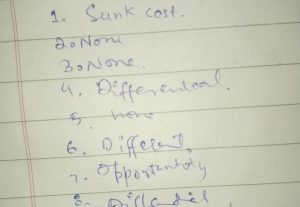 1. Sunk cost.
2. None
3. None.
4. Differendeal.
5. none
6. Different,
7. Opportunity
8.